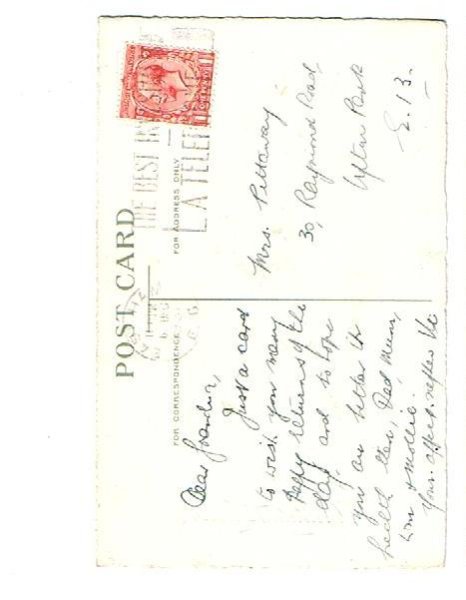 POST CARD
FOR CORRESPONDENCE
FOR ADDRESS ONLY
THE BEST IN
A TELE
Dear Grandma,
Just a card
to wish you many
happy returns of the
day, and to hope
you are better in
health Dad, Mum,
& Mollie.
Your affect. the
Mrs. Pettaway
30, Raymond Road,
Upton Park
E. 13.